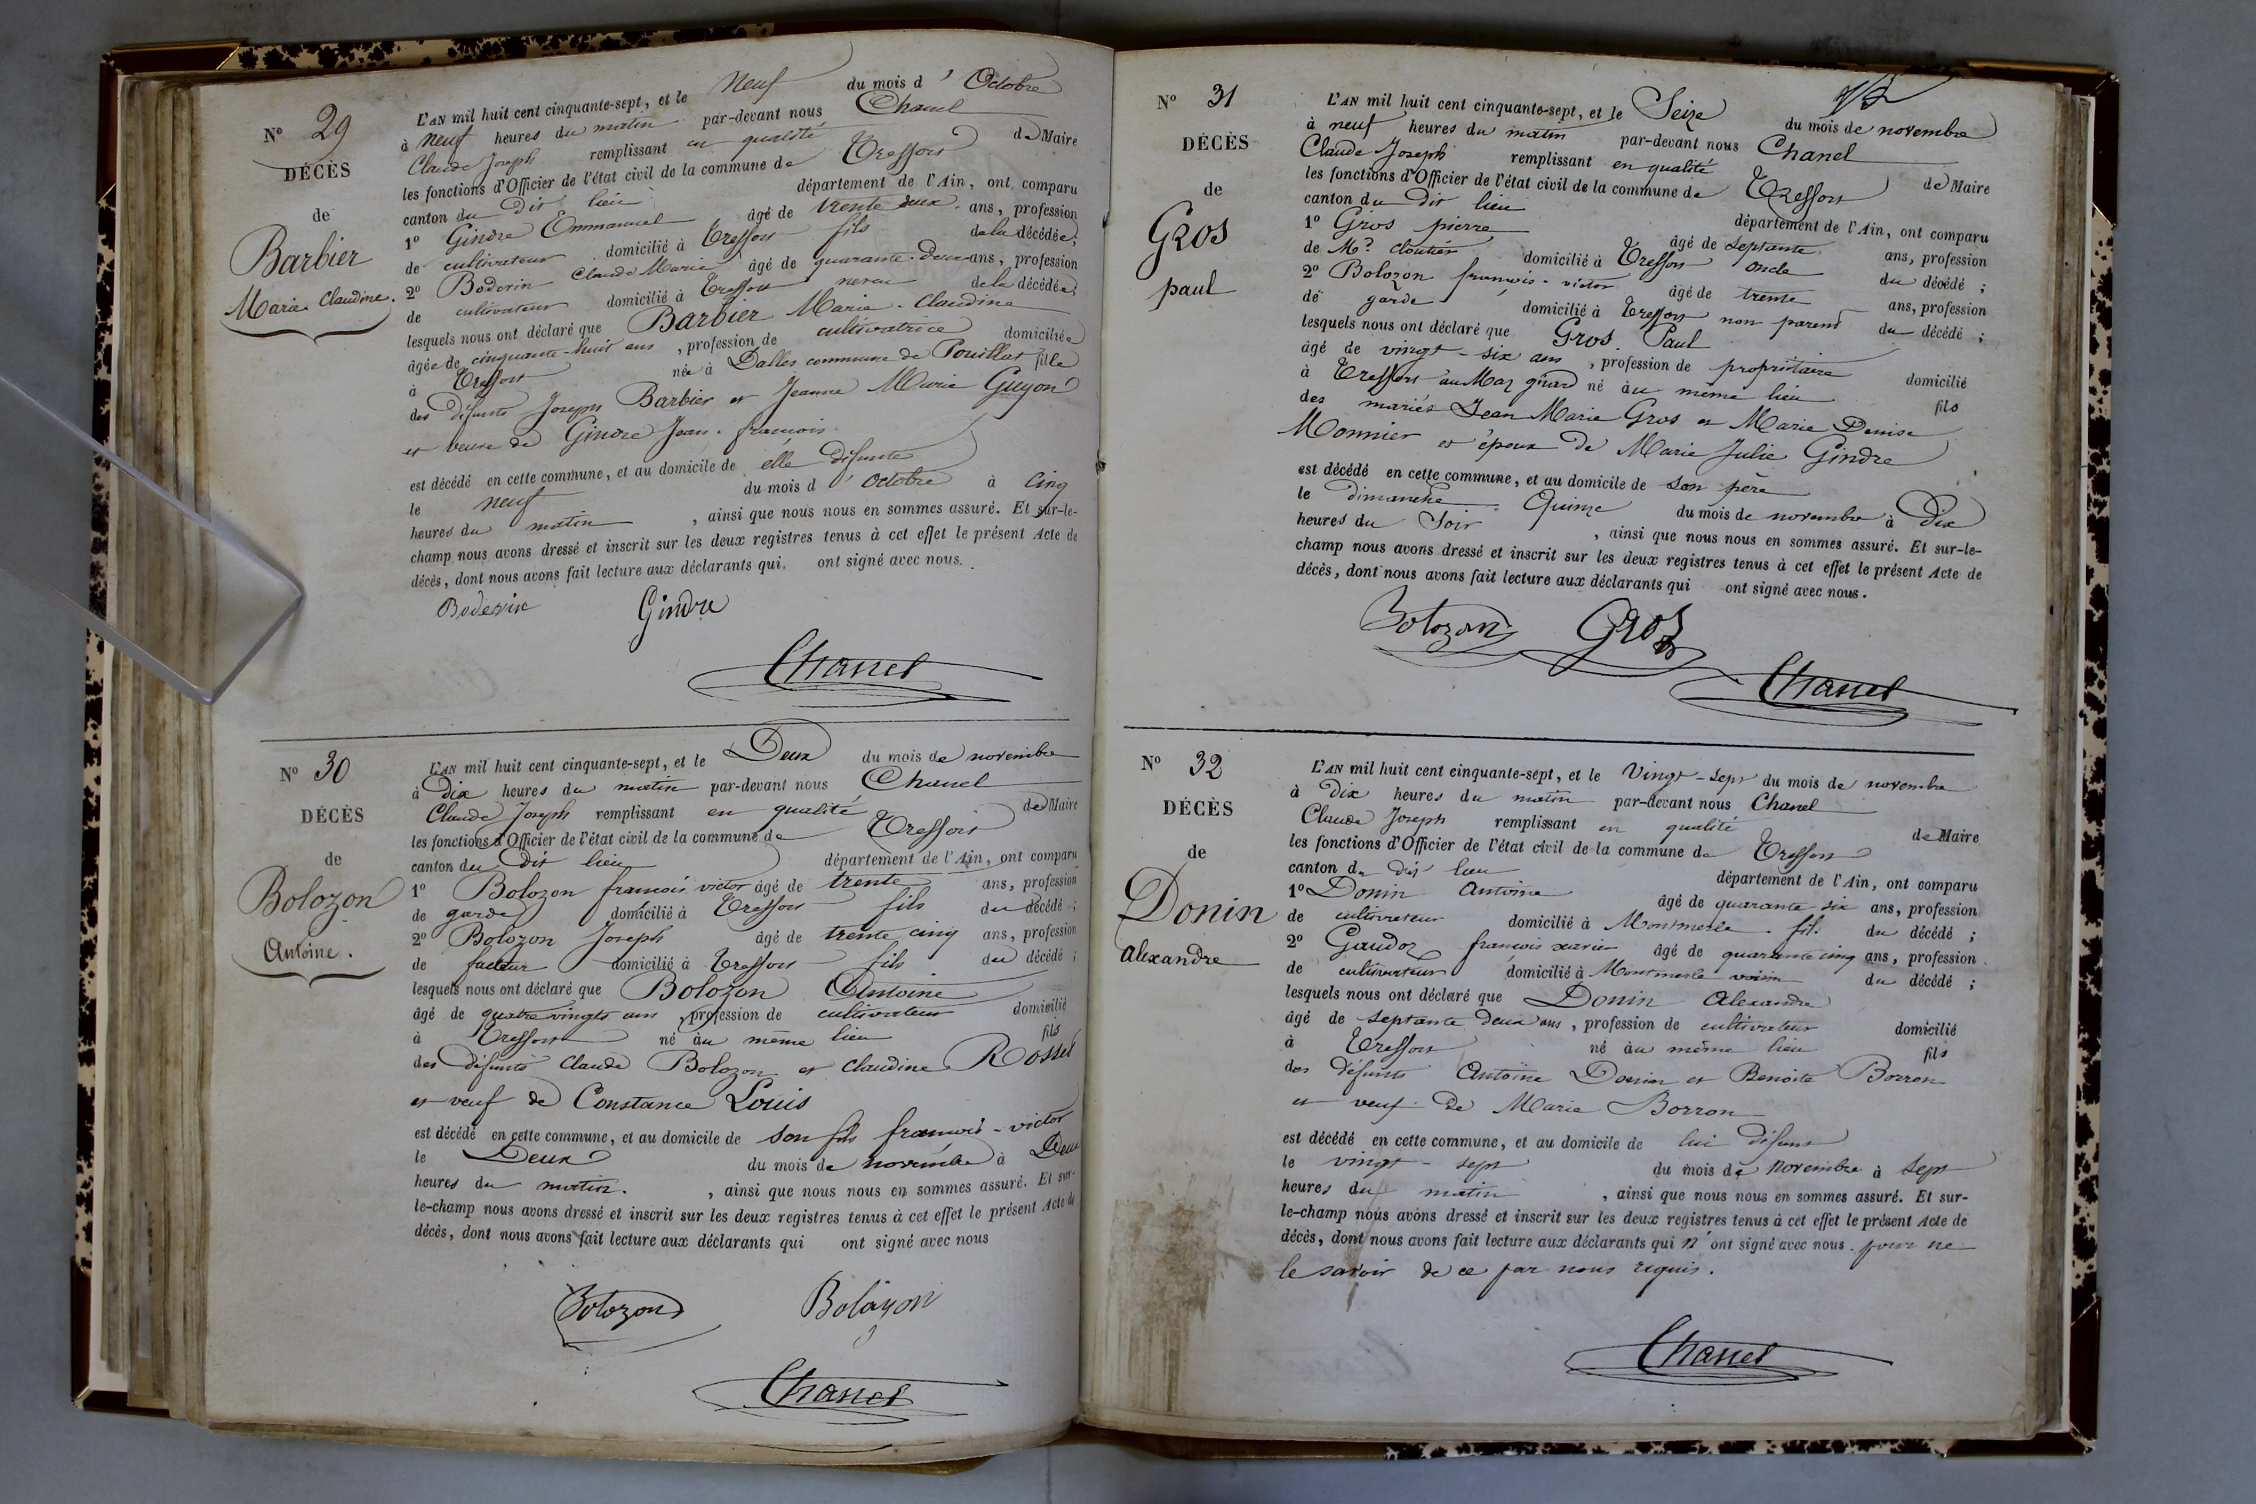 N° 29
DÉCÈS
de
Barbier
Marie Claudine.
L'AN mil huit cent cinquante-sept, et le Neuf du mois d'Octobre
à neuf heures du matin par-devant nous Chanel
Claude Joseph remplissant en qualité de Maire
les fonctions d'Officier de l'état civil de la commune de Treffort
canton du dit lieu département de l'Ain, ont comparu
1° Gindre Emmanuel âgé de trente deux ans, profession
de cultivateur domicilié à Treffort fils de la décédée;
2° Boderin Claude Marie âgé de quarante-deux ans, profession
de cultivateur domicilié à Treffort neveu de la décédée;
lesquels nous ont déclaré que Barbier Marie-Claudine
âgée de cinquante-huit ans, profession de cultivatrice domiciliée
à Treffort née à Dalles commune de Pouillat fille
des défunts Joseph Barbier et Jeanne Marie Guyon
et veuve de Gindre Jean-francois
est décédé en cette commune, et au domicile de elle défunte
le neuf du mois d'octobre à Cinq
heures du matin, ainsi que nous nous en sommes assuré. Et sur-le-
champ nous avons dressé et inscrit sur les deux registres tenus à cet effet le présent Acte de
décès, dont nous avons fait lecture aux déclarants qui ont signé avec nous.
Boderin Gindre
Chanel
N° 30
DÉCÈS
de
Bolozon
Antoine.
L'AN mil huit cent cinquante-sept, et le Deux du mois de novembre
à Dix heures du matin par-devant nous Chanel
Claude Joseph remplissant en qualité de Maire
les fonctions d'Officier de l'état civil de la commune de Treffort
canton du Dit lieu département de l'Ain, ont comparu
1° Bolozon francois victor âgé de trente ans, profession
de garde domicilié à Treffort fils du décédé;
2° Bolozon Joseph âgé de trente cinq ans, profession
de facteur domicilié à Treffort fils du décédé;
lesquels nous ont déclaré que Bolozon Antoine
âgé de quatre vingts ans, profession de cultivateur domicilié
à Treffort né au même lieu fils
des défunts Claude Bolozon et Claudine Rosset
et veuf de Constance Louis
est décédé en cette commune, et au domicile de son fils francois-victor
le Deux du mois de novembre à Deux
heures du matin., ainsi que nous nous en sommes assuré. Et sur-
le-champ nous avons dressé et inscrit sur les deux registres tenus à cet effet le présent Acte de
décès, dont nous avons fait lecture aux déclarants qui ont signé avec nous
Bolozon Bolozon
Chanel
N° 31
DÉCÈS
de
Gros
paul
L'AN mil huit cent cinquante-sept, et le Seize du mois de novembre
à neuf heures du matin par-devant nous Chanel
Claude Joseph remplissant en qualité de Maire
les fonctions d'Officier de l'état civil de la commune de Treffort
canton du dit lieu département de l'Ain, ont comparu
1° Gros pierre âgé de septante ans, profession
de Md cloutier domicilié à Treffort oncle du décédé;
2° Bolozon francois-victor âgé de trente ans, profession
de garde domicilié à Treffort non parent du décédé;
lesquels nous ont déclaré que Gros Paul
âgé de vingt-six ans, profession de propriétaire domicilié
à Treffort au Maz girard né au même lieu fils
des mariés Jean Marie Gros et Marie Denise
Monnier et époux de Marie Julie Gindre
est décédé en cette commune, et au domicile de son père
le dimanche Quinze du mois de novembre à Dix
heures du Soir, ainsi que nous nous en sommes assuré. Et sur-le-
champ nous avons dressé et inscrit sur les deux registres tenus à cet effet le présent Acte de
décès, dont nous avons fait lecture aux déclarants qui ont signé avec nous.
Bolozon Gros
Chanel
N° 32
DÉCÈS
de
Donin
alexandre
L'AN mil huit cent cinquante-sept, et le Vingt-sept du mois de novembre
à dix heures du matin par-devant nous Chanel
Claude Joseph remplissant en qualité de Maire
les fonctions d'Officier de l'état civil de la commune de Treffort
canton du dit lieu département de l'Ain, ont comparu
1° Donin Antoine âgé de quarante six ans, profession
de cultivateur domicilié à Montmerle fils du décédé;
2° Gaudoz francois xavier âgé de quarante cinq ans, profession
de cultivateur domicilié à Montmerle voisin du décédé;
lesquels nous ont déclaré que Donin Alexandre
âgé de septante deux ans, profession de cultivateur domicilié
à Treffort né au même lieu fils
des défunts Antoine Donin et Benoite Borron
et veuf de Marie Borron
est décédé en cette commune, et au domicile de lui défunt
le vingt-sept du mois de novembre à sept
heures du matin, ainsi que nous nous en sommes assuré. Et sur-
le-champ nous avons dressé et inscrit sur les deux registres tenus à cet effet le présent Acte de
décès, dont nous avons fait lecture aux déclarants qui n'ont signé avec nous pour ne
le savoir de ce par nous requis.
Chanel